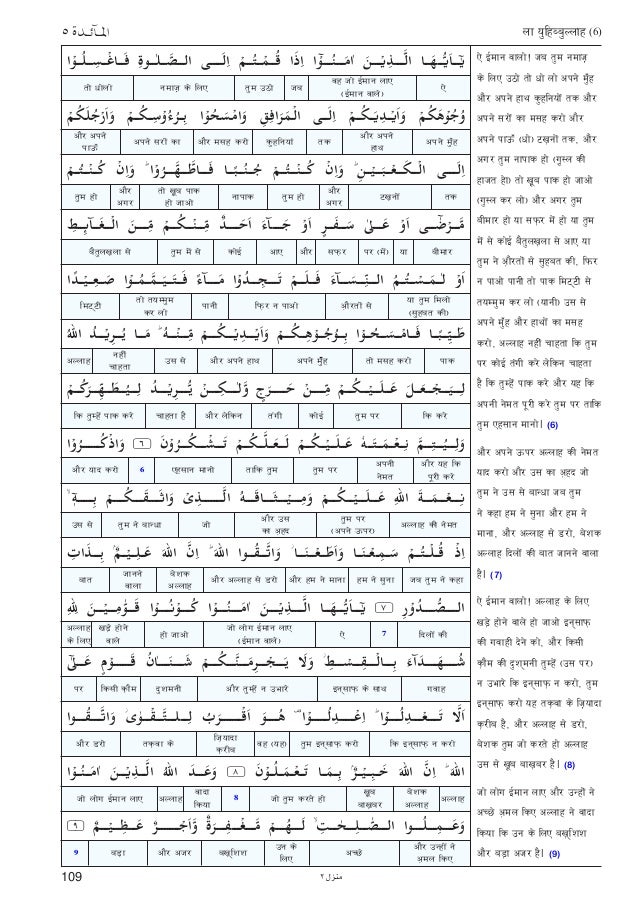 المآئدة ٥
ला युहिब्बुल्लाह (6)
يٰٓاَيُّهَا الَّذِيْنَ اٰمَنُوْٓا اِذَا قُمْتُمْ اِلَى الصَّلٰوةِ فَاغْسِلُوْا
ऐ | वह जो ईमान लाए (ईमान वाले) | जब | तुम उठो | नमाज़ के लिए | तो धोलो
وُجُوْهَكُمْ وَاَيْدِيَكُمْ اِلَى الْمَرَافِقِ وَامْسَحُوْا بِرُءُوْسِكُمْ وَاَرْجُلَكُمْ
अपने मुँह | और अपने हाथ | तक | कुहनियां | और मसह करो | अपने सरों का | और अपने पाऊँ
اِلَى الْكَعْبَيْنِ ؕ وَاِنْ كُنْتُمْ جُنُبًا فَاطَّهَّرُوْا ؕ وَاِنْ كُنْتُمْ
तक | टख़नों | और अगर | तुम हो | नापाक | तो खूब पाक हो जाओ | और अगर | तुम हो
مَّرْضٰٓى اَوْ عَلٰى سَفَرٍ اَوْ جَآءَ اَحَدٌ مِّنْكُمْ مِّنَ الْغَآئِطِ
बीमार | या | पर (में) | सफ़र | और | आए | कोई | तुम में से | बैतुलख़ला से
اَوْ لٰمَسْتُمُ النِّسَآءَ فَلَمْ تَجِدُوْا مَآءً فَتَيَمَّمُوْا صَعِيْدًا
या तुम मिलो (सुहबत की) | औरतों से | फिर न पाओ | पानी | तो तयम्मुम कर लो | मिट्टी
طَيِّبًا فَامْسَحُوْا بِوُجُوْهِكُمْ وَاَيْدِيْكُمْ مِّنْهُ ؕ مَا يُرِيْدُ اللّٰهُ
पाक | तो मसह करो | अपने मुँह | और अपने हाथ | उस से | नहीं चाहता | अल्लाह
لِيَجْعَلَ عَلَيْكُمْ مِّنْ حَرَجٍ وَّلٰكِنْ يُّرِيْدُ لِيُطَهِّرَكُمْ
कि करे | तुम पर | कोई | तंगी | और लेकिन | चाहता है | कि तुम्हें पाक करे
وَلِيُتِمَّ نِعْمَتَهٗ عَلَيْكُمْ لَعَلَّكُمْ تَشْكُرُوْنَ ٦ وَاذْكُرُوْا
और यह कि पूरी करे | अपनी नेमत | तुम पर | ताकि तुम | एहसान मानो | 6 | और याद करो
نِعْمَةَ اللّٰهِ عَلَيْكُمْ وَمِيْثَاقَهُ الَّذِيْ وَاثَقَكُمْ بِهٖٓ ۙ
अल्लाह की नेमत | तुम पर (अपने ऊपर) | और उस का अ़हद | जो | तुम ने बान्धा | उस से
اِذْ قُلْتُمْ سَمِعْنَا وَاَطَعْنَا ۫ وَاتَّقُوا اللّٰهَ ؕ اِنَّ اللّٰهَ عَلِيْمٌۢ بِذَاتِ
जब तुम ने कहा | हम ने सुना | और हम ने माना | और अल्लाह से डरो | बेशक अल्लाह | जानने वाला | बात
الصُّدُوْرِ ٧ يٰٓاَيُّهَا الَّذِيْنَ اٰمَنُوْا كُوْنُوْا قَوّٰمِيْنَ لِلّٰهِ
दिलों की | 7 | ऐ | जो लोग ईमान लाए (ईमान वाले) | हो जाओ | खड़े होने वाले | अल्लाह के लिए
شُهَدَآءَ بِالْقِسْطِ ؗ وَلَا يَجْرِمَنَّكُمْ شَنَاٰنُ قَوْمٍ عَلٰٓى
गवाह | इन्साफ़ के साथ | और तुम्हें न उभारे | दुशमनी | किसी क़ौम | पर
اَلَّا تَعْدِلُوْا ؕ اِعْدِلُوْا ۫ هُوَ اَقْرَبُ لِلتَّقْوٰى ؗ وَاتَّقُوا
कि इन्साफ़ न करो | तुम इन्साफ़ करो | वह (यह) | ज़ियादा क़रीब | तक़वा के | और डरो
اللّٰهَ ؕ اِنَّ اللّٰهَ خَبِيْرٌۢ بِمَا تَعْمَلُوْنَ ٨ وَعَدَ اللّٰهُ الَّذِيْنَ اٰمَنُوْا
अल्लाह | बेशक अल्लाह | खूब बाख़बर | जो तुम करते हो | 8 | वादा किया | अल्लाह | जो लोग ईमान लाए
وَعَمِلُوا الصّٰلِحٰتِ ۙ لَهُمْ مَّغْفِرَةٌ وَّاَجْرٌ عَظِيْمٌ ٩
और उन्हों ने अ़मल किए | अच्छे | उन के लिए | बख़्शिश | और अजर | बड़ा | 9
ऐ ईमान वालो! जब तुम नमाज़
के लिए उठो तो धो लो अपने मुँह
और अपने हाथ कुहनियों तक और
अपने सरों का मसह करो और
अपने पाऊँ (धो) टख़नों तक, और
अगर तुम नापाक हो (गुस्ल की
हाजत हो) तो खूब पाक हो जाओ
(गुस्ल कर लो) और अगर तुम
बीमार हो या सफ़र में हो या तुम
में से कोई बैतुलख़ला से आए या
तुम ने औरतों से सुहबत की, फिर
न पाओ पानी तो पाक मिट्टी से
तयम्मुम कर लो (यानी) उस से
अपने मुँह और हाथों का मसह
करो, अल्लाह नहीं चाहता कि तुम
पर कोई तंगी करे लेकिन चाहता
है कि तुम्हें पाक करे और यह कि
अपनी नेमत पूरी करे तुम पर ताकि
तुम एहसान मानो। (6)
और अपने ऊपर अल्लाह की नेमत
याद करो और उस का अ़हद जो
तुम ने उस से बान्धा जब तुम
ने कहा हम ने सुना और हम ने
माना, और अल्लाह से डरो, बेशक
अल्लाह दिलों की बात जानने वाला
है। (7)
ऐ ईमान वालो! अल्लाह के लिए
खड़े होने वाले हो जाओ इन्साफ़
की गवाही देने को, और किसी
क़ौम की दुशमनी तुम्हें (उस पर)
न उभारे कि इन्साफ़ न करो, तुम
इन्साफ़ करो यह तक़वा के ज़ियादा
क़रीब है, और अल्लाह से डरो,
बेशक तुम जो करते हो अल्लाह
उस से खूब बाख़बर है। (8)
जो लोग ईमान लाए और उन्हों ने
अच्छे अ़मल किए अल्लाह ने वादा
किया कि उन के लिए बख़्शिश
और बड़ा अजर है। (9)
109
منزل ٢